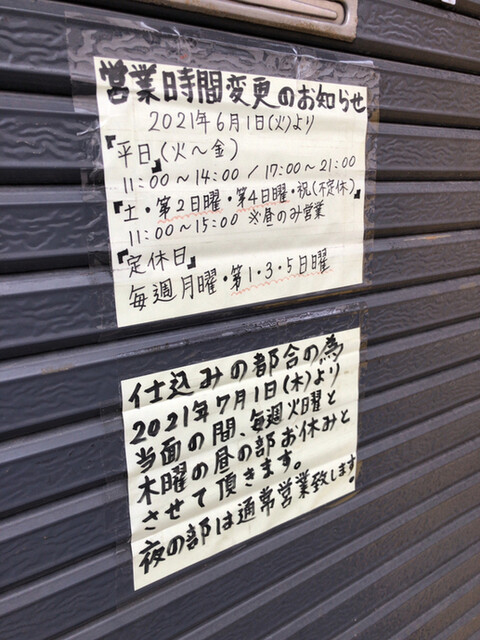 営業時間変更のお知らせ
2021年6月1日(火)より
『平日』(火〜金)
11:00〜14:00 / 17:00〜21:00
『土・第2日曜・第4日曜・祝(不定休)』
11:00〜15:00 ※昼のみ営業
『定休日』
毎週月曜・第1・3・5日曜
仕込みの都合の為
2021年7月1日(木)より
当面の間、毎週火曜と
木曜の昼の部お休みと
させて頂きます。
夜の部は通常営業致します!